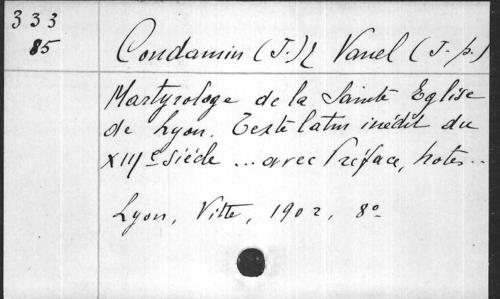 333
85
Condamin (J.) & Vanel (J.-B.)
Martyrologe de la Sainte Eglise
de Lyon. Texte latin inédit du
XIIIe Siècle ... avec Préface, notes...
Lyon, Vitte, 1902, 8°